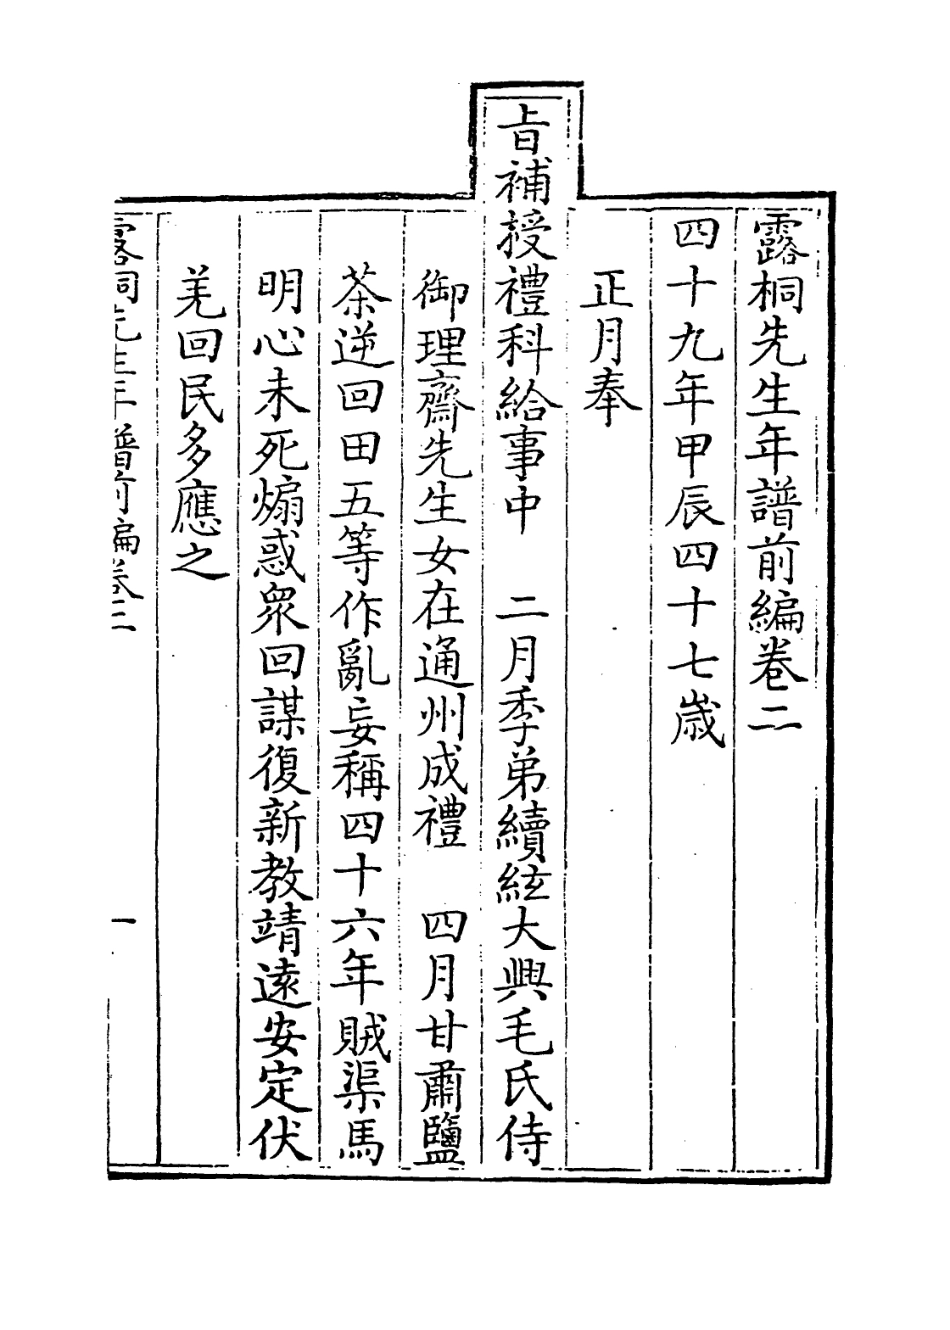 露桐先生年譜前編卷二
四十九年甲辰四十七歲
正月奉
旨補授禮科給事中　二月季弟續絃大興毛氏侍
御理齋先生女在通州成禮　四月甘肅鹽
茶逆回田五等作亂妄稱四十六年賊渠馬
明心未死煽惑衆回謀復新教靖遠安定伏
羌回民多應之
露桐先生年譜前編卷二　一